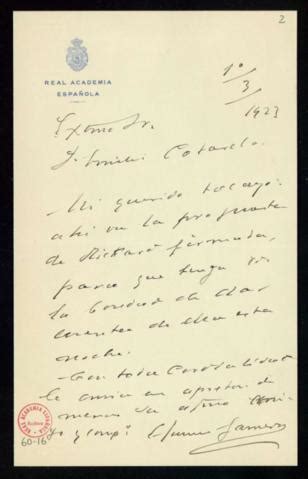 2
REAL ACADEMIA
ESPAÑOLA
1º/3/1923
Excmo Sr.
D. Emilio Cotarelo.
Mi querido tocayo:
ahí va la propuesta
de Rickard firmada,
para que tenga Vd
la bondad de dar
cuenta de ella esta
noche.
Con toda cordialidad
le envía un apretón de
manos su afmo ami-
go y compº
REAL ACADEMIA ESPAÑOLA
Archivo
60-16